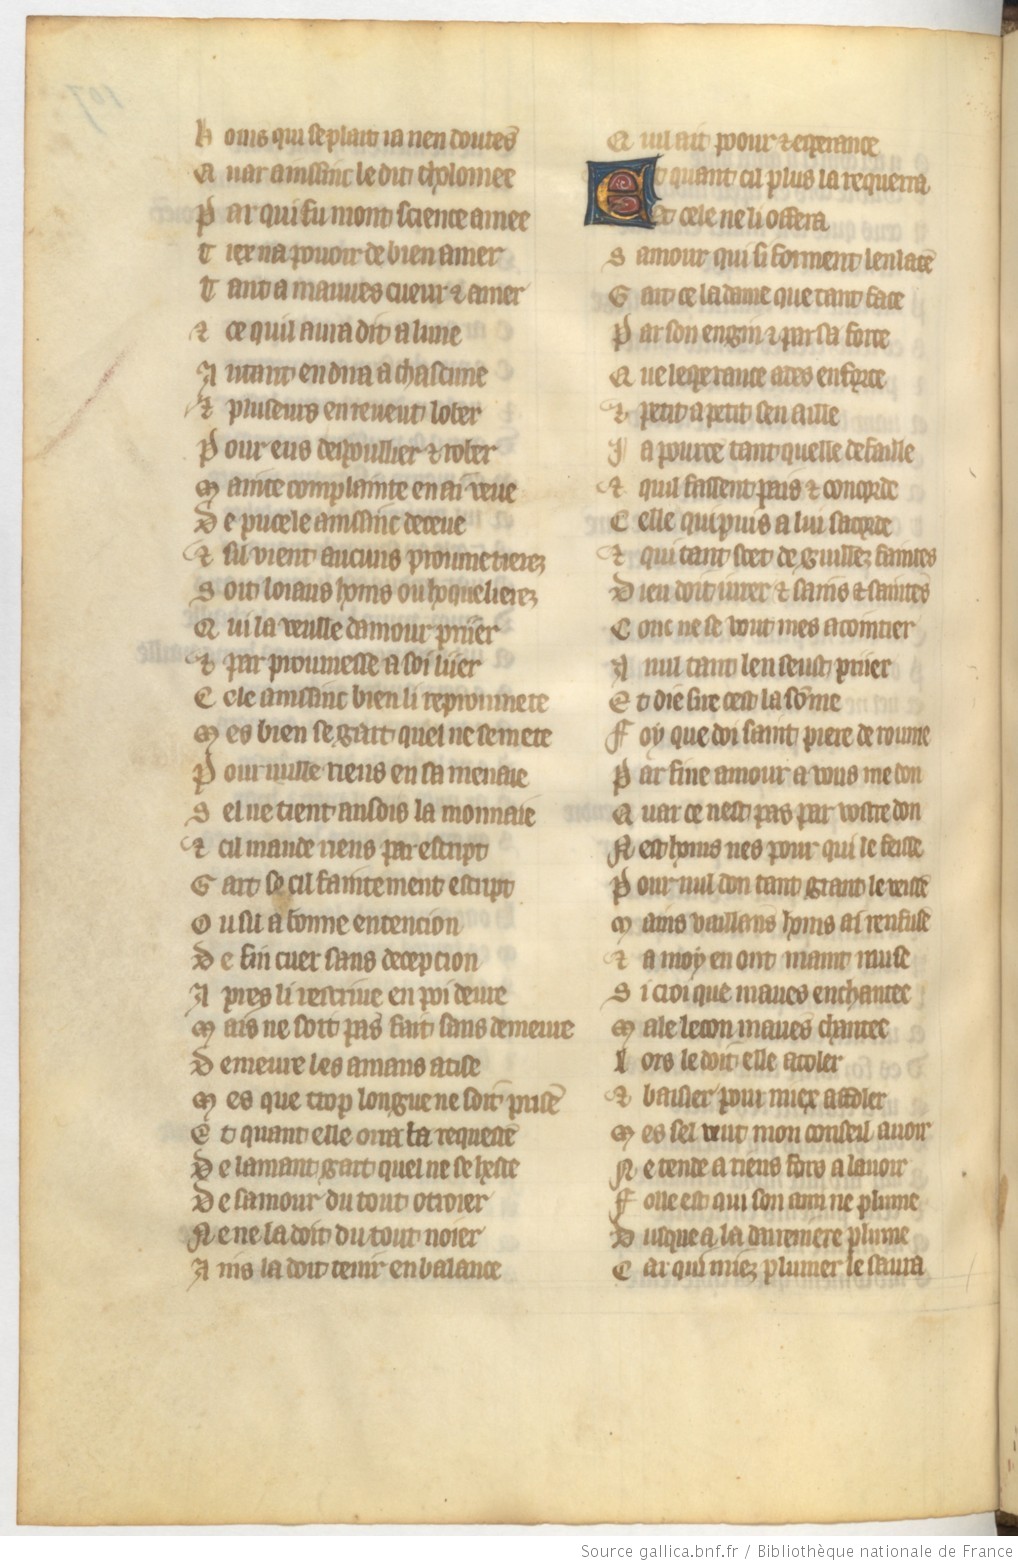 Homs qui se plait ia nen doutes
Quar ainssinc le dit tholomee
Par qui fu mont science amee
Tiex na pouoir de bien amer
Tant a mauues cueur & amer
& ce quil aura dit a lune
Autant en dira a chascune
& pluseurs en reueut lober
Pour eus despoullier & rober
Mainte complainte en ai veue
De pucele ainssinc deceue
& sil vient aucuns prometierez
Soit loiaus homs ou hoquelierez
Qui la veulle damour priier
& par promesse a soi liier
Cele ainssinc bien li repromete
Mes bien se gart quel ne se mete
Pour nulle riens en sa menaie
Sel ne tient ansois la monnaie
& cil mande riens par escript
Gart se cil faintement escript
Ou sil a bonne entencion
De fin cuer sans decepcion
Apres li rescriue en poi deure
Mais ne soit pas fait sans demeure
Demeure les amans atise
Mes que trop longue ne soit prise
Et quant elle orra la requeste
De lamant gart quel ne se heste
De samour du tout otroier
Ne ne la doit du tout noier
Ains la doit tenir en balance
Quil ait poour & esperance
Et quant cil plus la requerra
Et cele ne li offerra
Samour qui si forment lenlace
Gart ce la dame que tant face
Par son engin & par sa force
Que lesperance ades enforce
& petit a petit sen aille
Ia pource tant quelle defaille
& quil fassent pais & concorde
Celle qui puis a lui sacorde
& qui tant scet de guillez faintes
Dieu doit iurer & sains & saintes
Conc ne se vout mes acointier
A nul tant len seust priier
Et die sire cest la some
Foy que doi saint piere de roume
Par fine amour a vous me don
Quar ce nest pas par vostre don
Nest homs nes pour qui le feisse
Pour nul don tant grant le veisse
Mains vaillans homs ai renfuse
& a moy en ont maint muse
Si croi que maues enchantee
Male lecon maues chantee
Lors le doit elle acoler
& baisier pour miex affoler
Mes sel veut mon conseil auoir
Ne tende a riens fors a lauoir
Folle est qui son ami ne plume
Dusque a la dareniere plume
Car qui miez plumer le saura
Source gallica.bnf.fr / Bibliothèque nationale de France